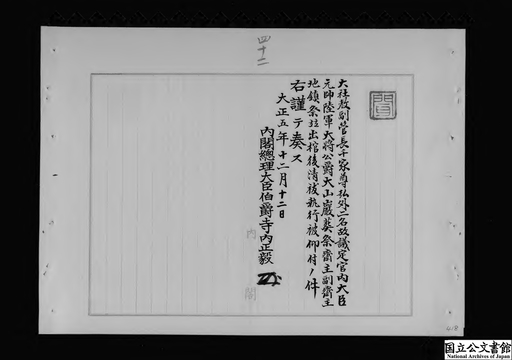 四十二
聞
大社教副管長千家尊弘外二名故議定官内大臣
元帥陸軍大将公爵大山巌葬祭斎主副斎主
地鎮祭並出棺後清祓執行被仰付ノ件
右謹テ奏ス
大正五年十二月十二日
内閣總理大臣伯爵寺内正毅
内閣
国立公文書館
National Archives of Japan